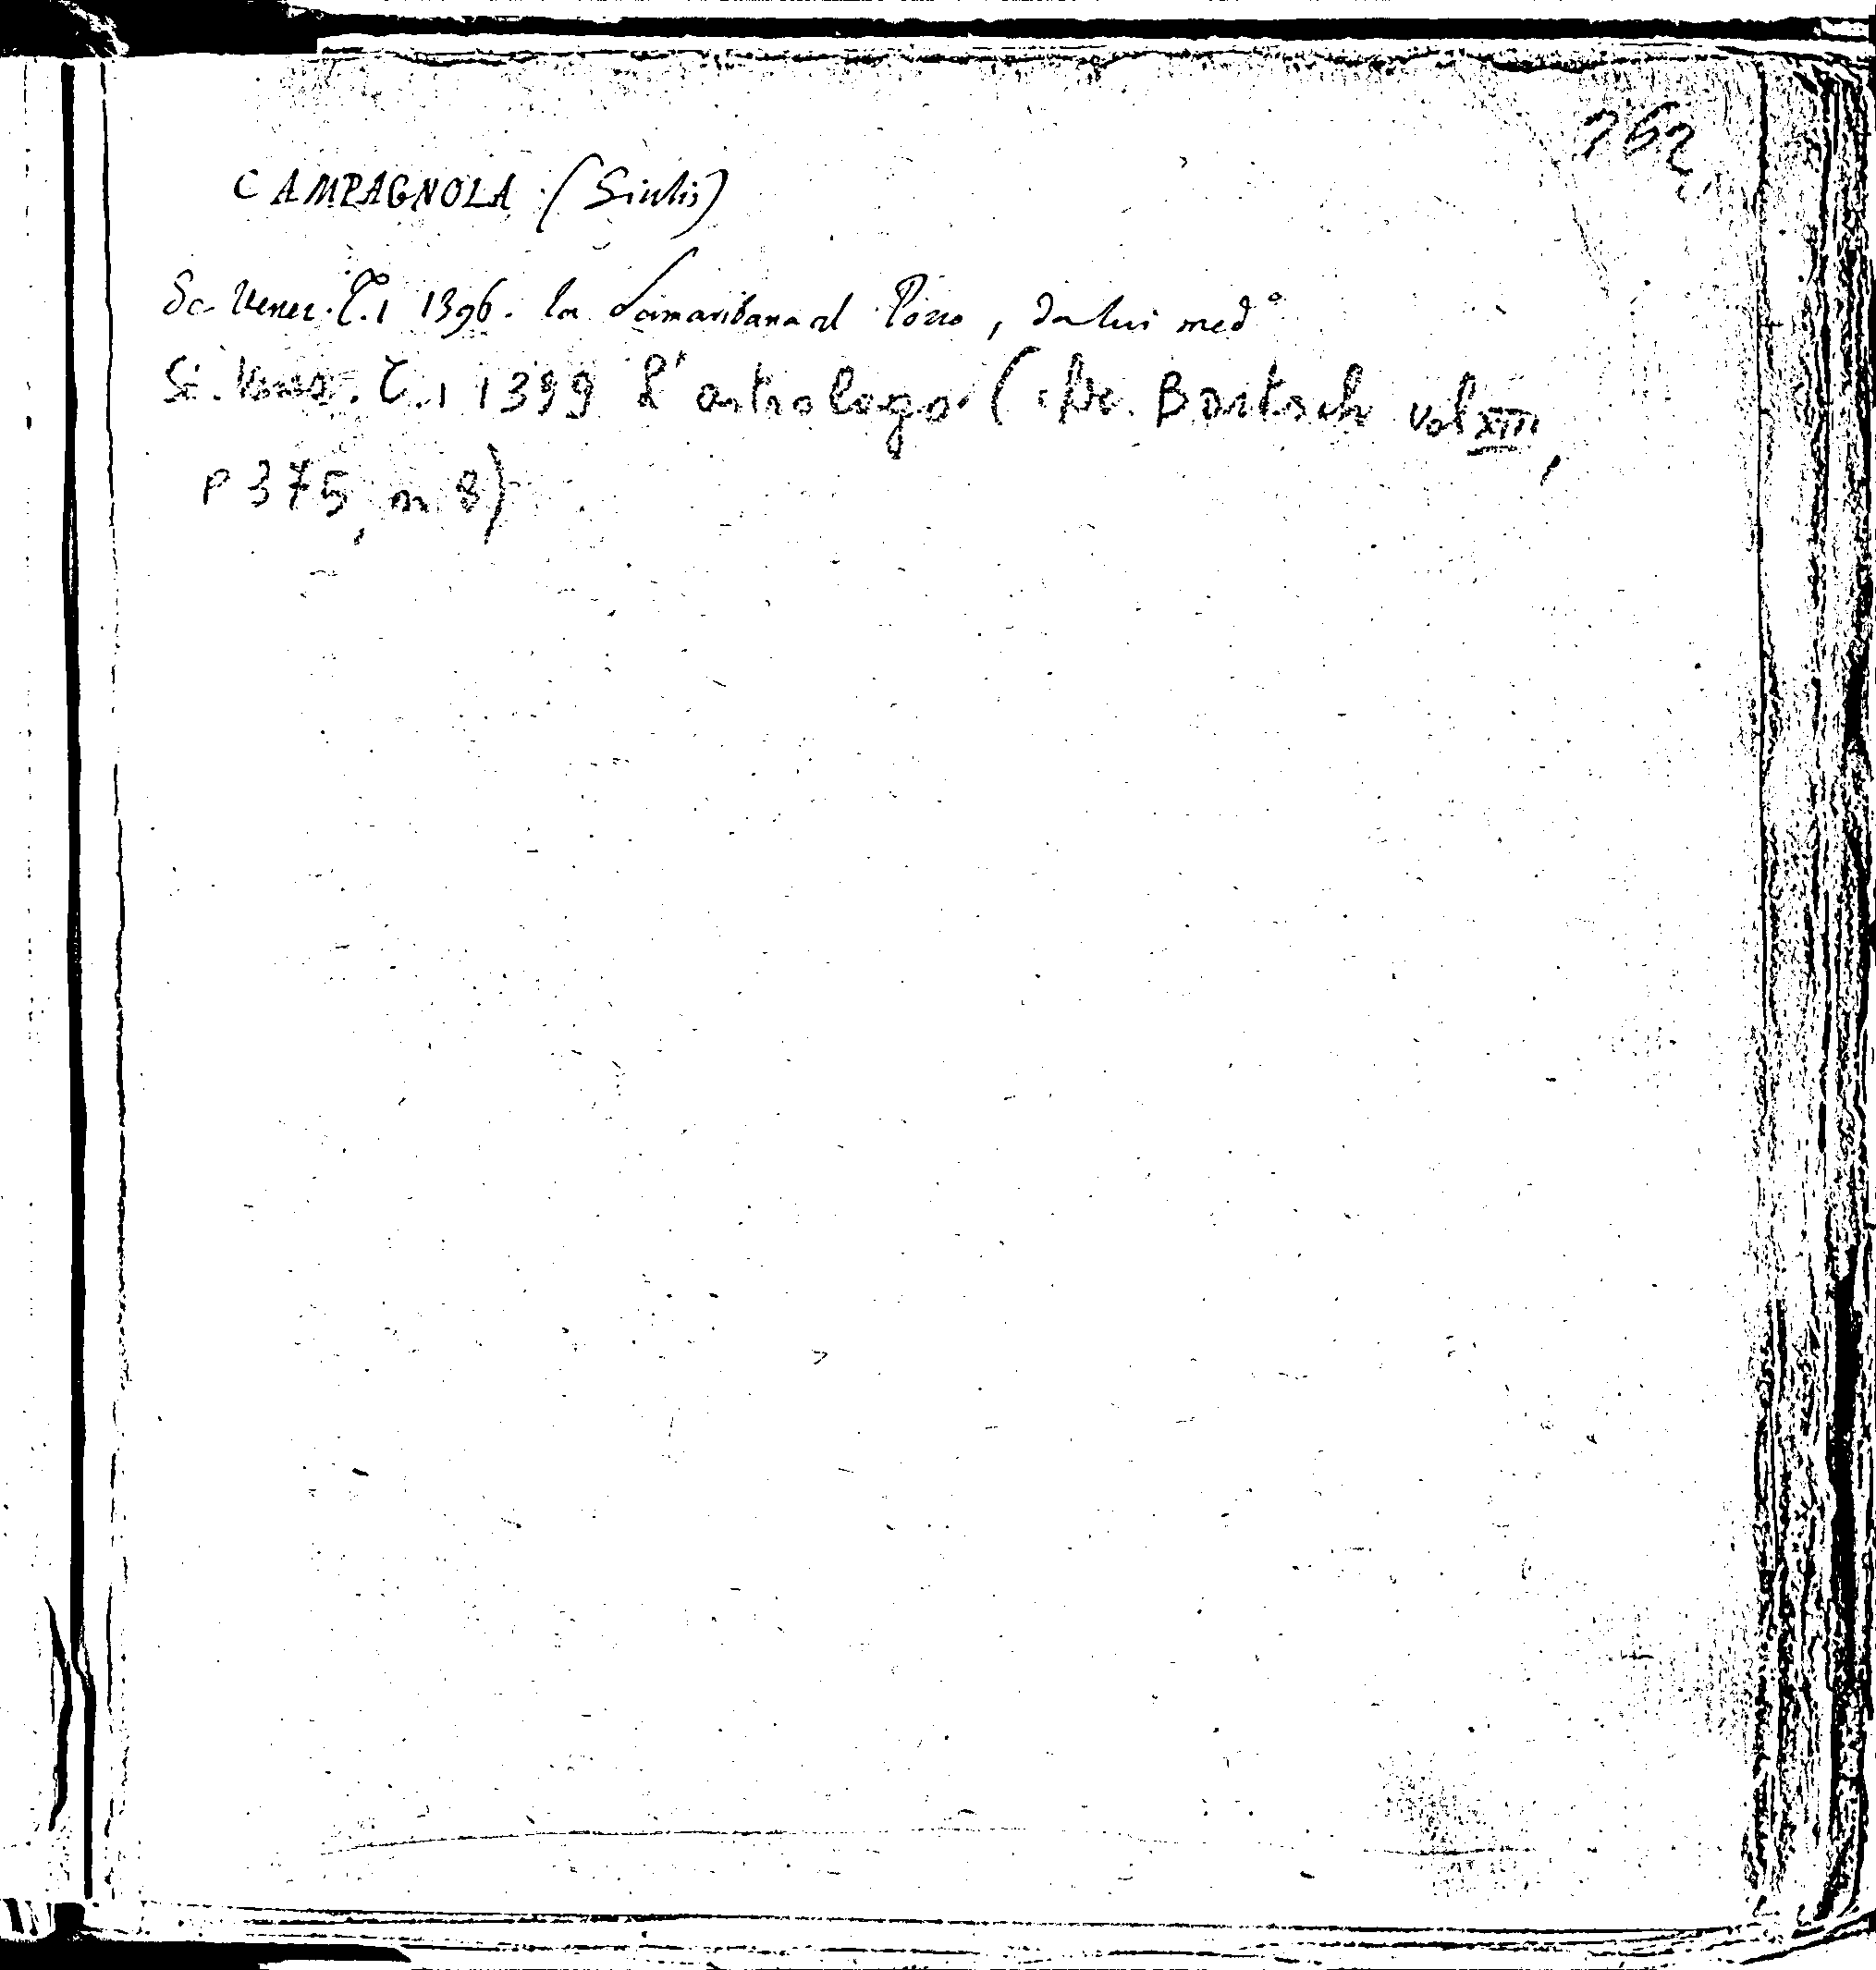 762
CAMPAGNOLA (Giulio)
Sc. Venez. T. 1 1396. la Samaritana al Pozzo, da lui med°
Sc. Venez. T. 1 1399 L'astrologo (Bartsch vol XIII,
p 375, n 8)